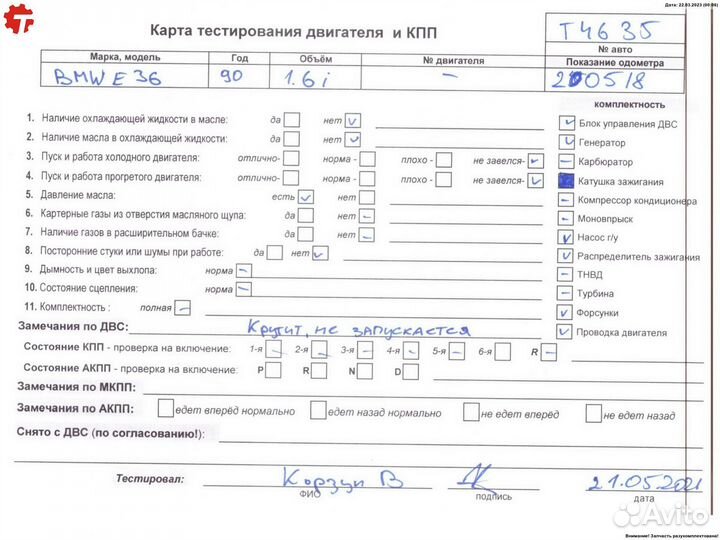 Дата: 22.03.2023 (00:06)
Карта тестирования двигателя и КПП
T4635
№ авто
Марка, модель Год Объём № двигателя Показание одометра
BMW E36 90 1.6i – 200518
комплектность
1. Наличие охлаждающей жидкости в масле: да нет
Блок управления ДВС
2. Наличие масла в охлаждающей жидкости: да нет
Генератор
3. Пуск и работа холодного двигателя: отлично- норма - плохо - не завелся-
Карбюратор
4. Пуск и работа прогретого двигателя: отлично- норма - плохо - не завелся-
Катушка зажигания
5. Давление масла: есть нет
Компрессор кондиционера
6. Картерные газы из отверстия масляного щупа: да нет
Моновпрыск
7. Наличие газов в расширительном бачке: да нет
Насос г/у
8. Посторонние стуки или шумы при работе: да нет
Распределитель зажигания
9. Дымность и цвет выхлопа: норма
ТНВД
10. Состояние сцепления: норма
Турбина
11. Комплектность : полная
Форсунки
Замечания по ДВС: Крутит, не запускается
Проводка двигателя
Состояние КПП - проверка на включение: 1-я 2-я 3-я 4-я 5-я 6-я R
Состояние АКПП - проверка на включение: P R N D
Замечания по МКПП:
Замечания по АКПП: едет вперёд нормально едет назад нормально не едет вперёд не едет назад
Снято с ДВС (по согласованию!):
Тестировал: Корзун В 21.05.2021
ФИО подпись дата
Avito
Внимание! Запчасть разукомплектована!